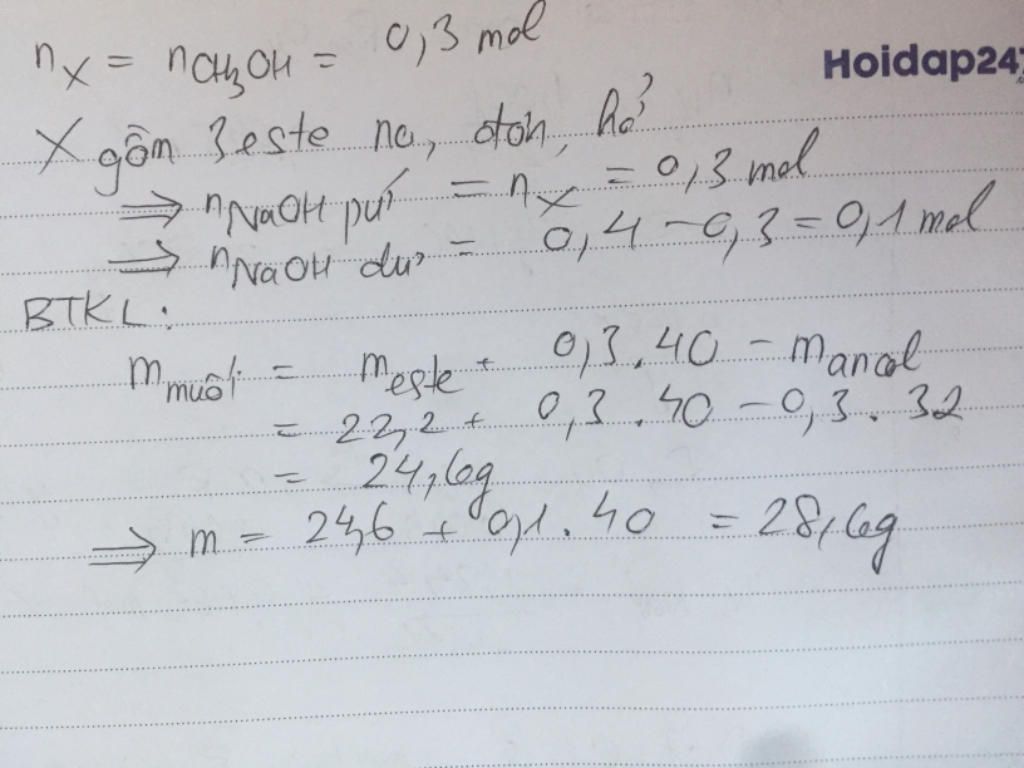 nX = nCH3OH = 0,3 mol
Hoidap247
X gồm 3 este no, đơn, hở
⇒ nNaOH pứ = nX = 0,3 mol
⇒ nNaOH dư = 0,4 - 0,3 = 0,1 mol
BTKL:
mmuối = meste + 0,3.40 - mancol
= 22,2 + 0,3.40 - 0,3.32
= 24,6g
⇒ m = 24,6 + 0,1.40 = 28,6g